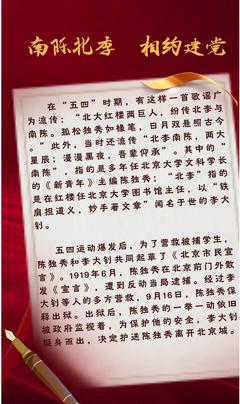 南陈北李 相约建党
在“五四”时期，有这样一首歌谣广
为流传：“北大红楼两巨人，纷传北李与
南陈。孤松独秀如椽笔，日月双悬照古今
。”此外，当时还流传“北李南陈，两大
星辰；漫漫黑夜，吾辈仰承”。其中的“
南陈”，指的是多年任北京大学文科学长
的《新青年》主编陈独秀；“北李”指的
是在红楼任北京大学图书馆主任，以“铁
肩担道义，妙手著文章”闻名于世的李大
钊。
五四运动爆发后，为了营救被捕学生，
陈独秀和李大钊共同起草了《北京市民宣
言》。1919年6月，陈独秀在北京前门外散
发《宣言》，遭到反动当局逮捕。经过李
大钊等人的多方营救，9月16日，陈独秀保
释出狱。出狱后，陈独秀的一举一动依旧
被政府监视着，为保护他的安全，李大钊
挺身而出，决定护送陈独秀离开北京城。